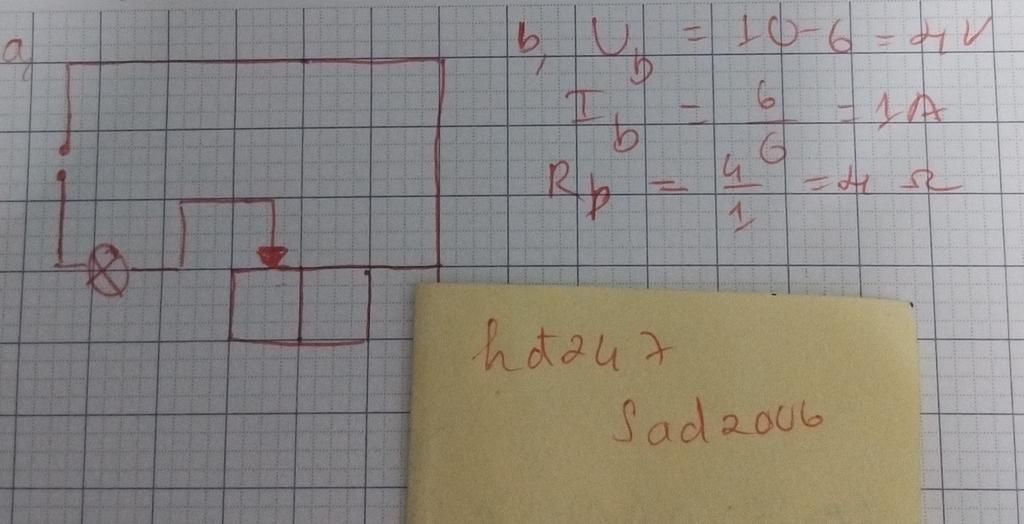 a,
b, U_b = 10-6 = 4V
I_b = 6/6 = 1A
R_b = 4/1 = 4 Ω
hd247
Sad2006